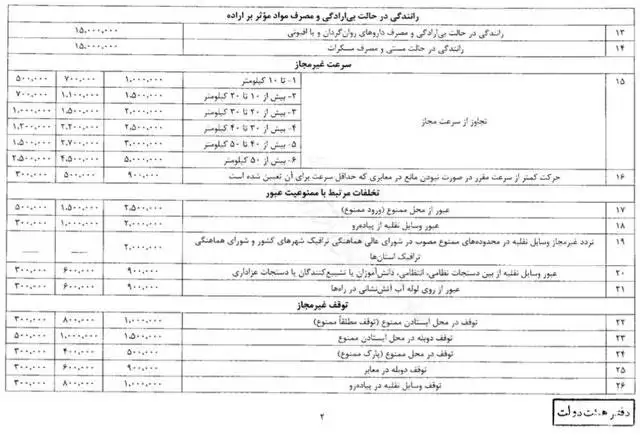 رانندگی در حالت بی‌ارادگی و مصرف مواد مؤثر بر اراده
۱۳ رانندگی در حالت بی‌ارادگی و مصرف داروهای روان‌گردان و یا افیونی ۱۵،۰۰۰،۰۰۰
۱۴ رانندگی در حالت مستی و مصرف مسکرات ۱۵،۰۰۰،۰۰۰
سرعت غیرمجاز
۱۵ تجاوز از سرعت مجاز
۱- تا ۱۰ کیلومتر ۱،۰۰۰،۰۰۰ ۷۰۰،۰۰۰ ۵۰۰،۰۰۰
۲- بیش از ۱۰ تا ۲۰ کیلومتر ۱،۵۰۰،۰۰۰ ۱،۱۰۰،۰۰۰ ۷۰۰،۰۰۰
۳- بیش از ۲۰ تا ۳۰ کیلومتر ۲،۰۰۰،۰۰۰ ۱،۵۰۰،۰۰۰ ۱،۰۰۰،۰۰۰
۴- بیش از ۳۰ تا ۴۰ کیلومتر ۲،۵۰۰،۰۰۰ ۲،۲۰۰،۰۰۰ ۱،۲۰۰،۰۰۰
۵- بیش از ۴۰ تا ۵۰ کیلومتر ۳،۰۰۰،۰۰۰ ۲،۷۰۰،۰۰۰ ۱،۵۰۰،۰۰۰
۶- بیش از ۵۰ کیلومتر ۵،۰۰۰،۰۰۰ ۴،۵۰۰،۰۰۰ ۲،۵۰۰،۰۰۰
۱۶ حرکت کمتر از سرعت مقرر در صورت نبودن مانع در معابری که حداقل سرعت برای آن تعیین شده است ۹۰۰،۰۰۰ ۵۰۰،۰۰۰ ۳۰۰،۰۰۰
تخلفات مرتبط با ممنوعیت عبور
۱۷ عبور از محل ممنوع (ورود ممنوع) ۲،۵۰۰،۰۰۰ ۱،۵۰۰،۰۰۰ ۵۰۰،۰۰۰
۱۸ عبور وسایل نقلیه از پیاده‌رو ۲،۰۰۰،۰۰۰ ۱،۰۰۰،۰۰۰ ۳۰۰،۰۰۰
۱۹ تردد غیرمجاز وسایل نقلیه در محدوده‌های ممنوع مصوب در شورای عالی هماهنگی ترافیک شهرهای کشور و شورای هماهنگی ۲،۰۰۰،۰۰۰ — —
ترافیک استان‌ها
۲۰ عبور وسایل نقلیه از بین دستجات نظامی، انتظامی، دانش‌آموزان یا تشییع‌کنندگان یا دستجات عزاداری ۹۰۰،۰۰۰ ۶۰۰،۰۰۰ ۳۰۰،۰۰۰
۲۱ عبور از روی لوله آب آتش‌نشانی در راه‌ها ۹۰۰،۰۰۰ ۶۰۰،۰۰۰ ۳۰۰،۰۰۰
توقف غیرمجاز
۲۲ توقف در محل ایستادن ممنوع (توقف مطلقاً ممنوع) ۱،۰۰۰،۰۰۰ ۸۰۰،۰۰۰ ۳۰۰،۰۰۰
۲۳ توقف دوبله در محل ایستادن ممنوع ۱،۵۰۰،۰۰۰ ۱،۰۰۰،۰۰۰ ۵۰۰،۰۰۰
۲۴ توقف در محل ممنوع (پارک ممنوع) ۵۰۰،۰۰۰ ۴۰۰،۰۰۰ ۳۰۰،۰۰۰
۲۵ توقف دوبله در معابر ۹۰۰،۰۰۰ ۶۰۰،۰۰۰ ۳۰۰،۰۰۰
۲۶ توقف وسایل نقلیه در پیاده‌رو ۱،۰۰۰،۰۰۰ ۸۰۰،۰۰۰ ۳۰۰،۰۰۰
۲
دفتر هیئت دولت